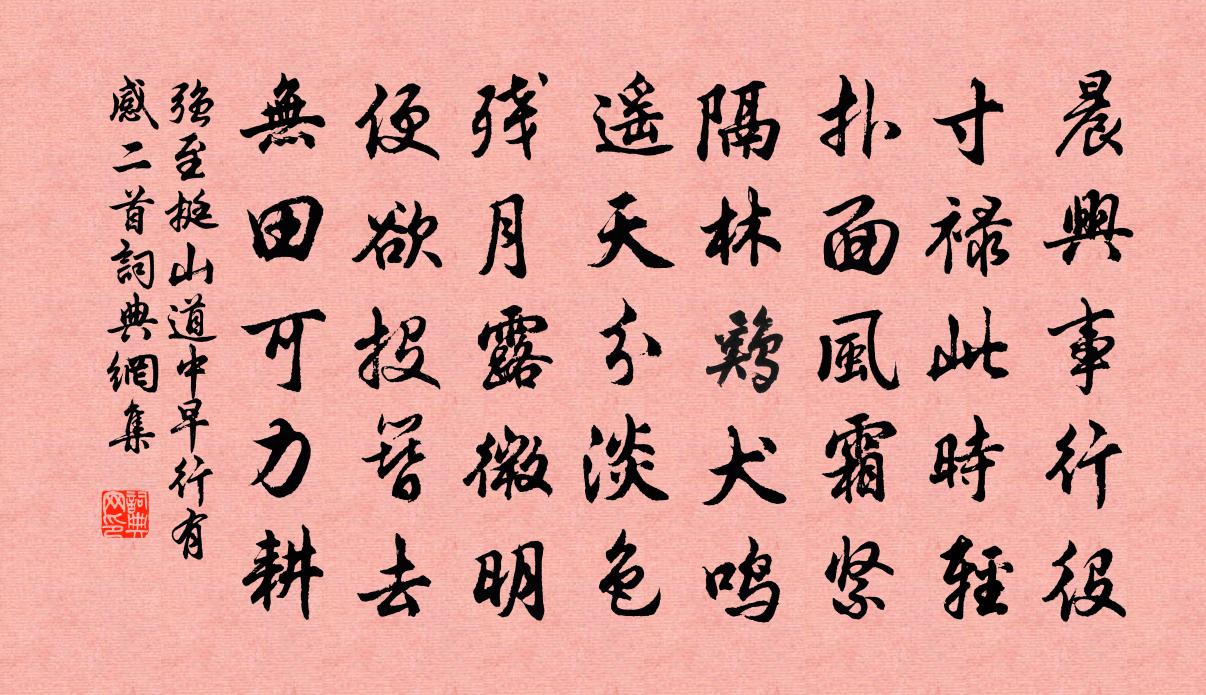 晨興事行役
寸祿此時輕
扑面風霜緊
隔林鷄犬鳴
遥天分淡色
残月露微明
便欲投簪去
無田可力耕
強至挺山道中早行有
感二首詞典網集
詞典
网印